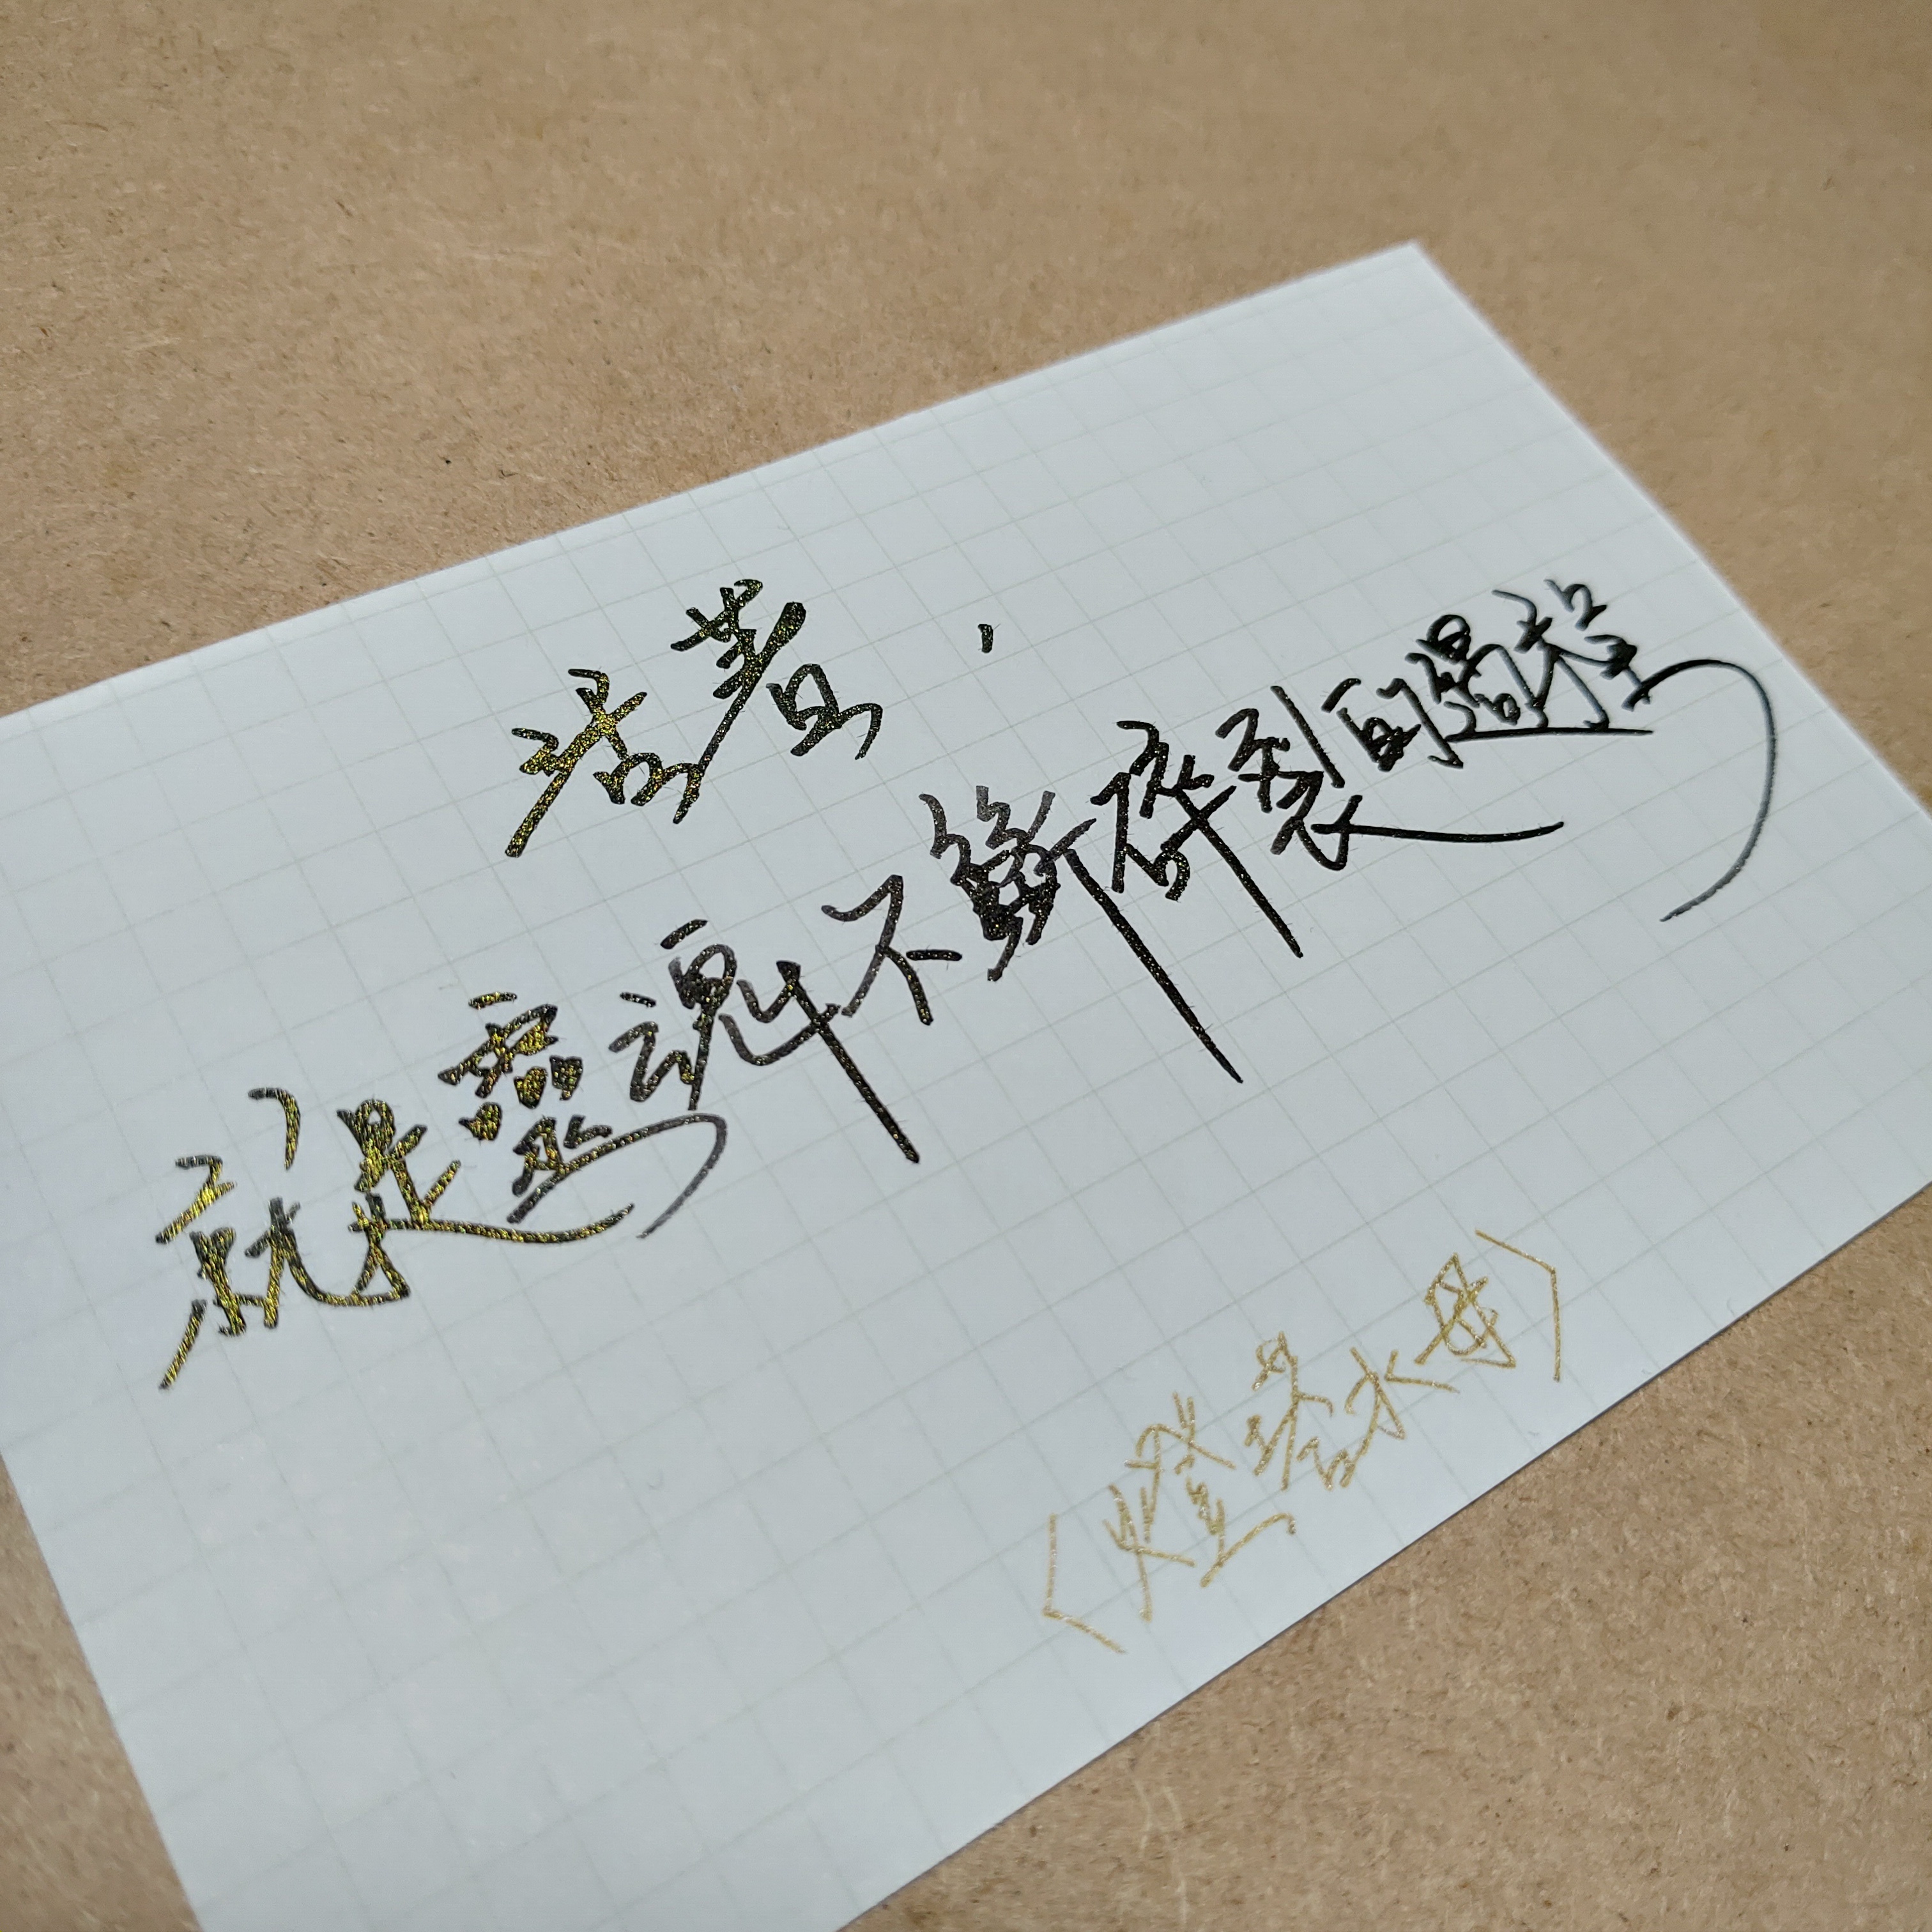 活著，
就是靈魂不斷碎裂的過程
〈燈塔水母〉